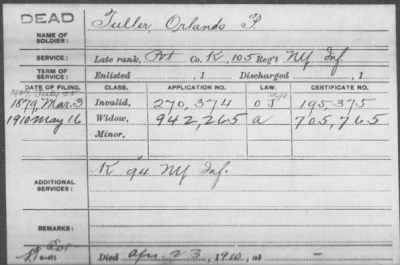 DEAD
NAME OF SOLDIER: Fuller, Orlando P.
SERVICE: Late rank, Pvt Co. K, 105 Reg't NY Inf.
TERM OF SERVICE: Enlisted , 1 Discharged , 1
DATE OF FILING. CLASS. APPLICATION NO. LAW. CERTIFICATE NO.
1879, Mar. 3 Invalid, 270,374 O J 195375
1910 May 16 Widow, 942,265 a 705,765
Minor,
ADDITIONAL SERVICES: K 94 NY Inf.
REMARKS:
Died Apr. 23, 1910, at —